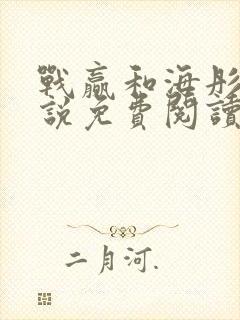 戰贏和海彤
說免費閱讀
二月河.